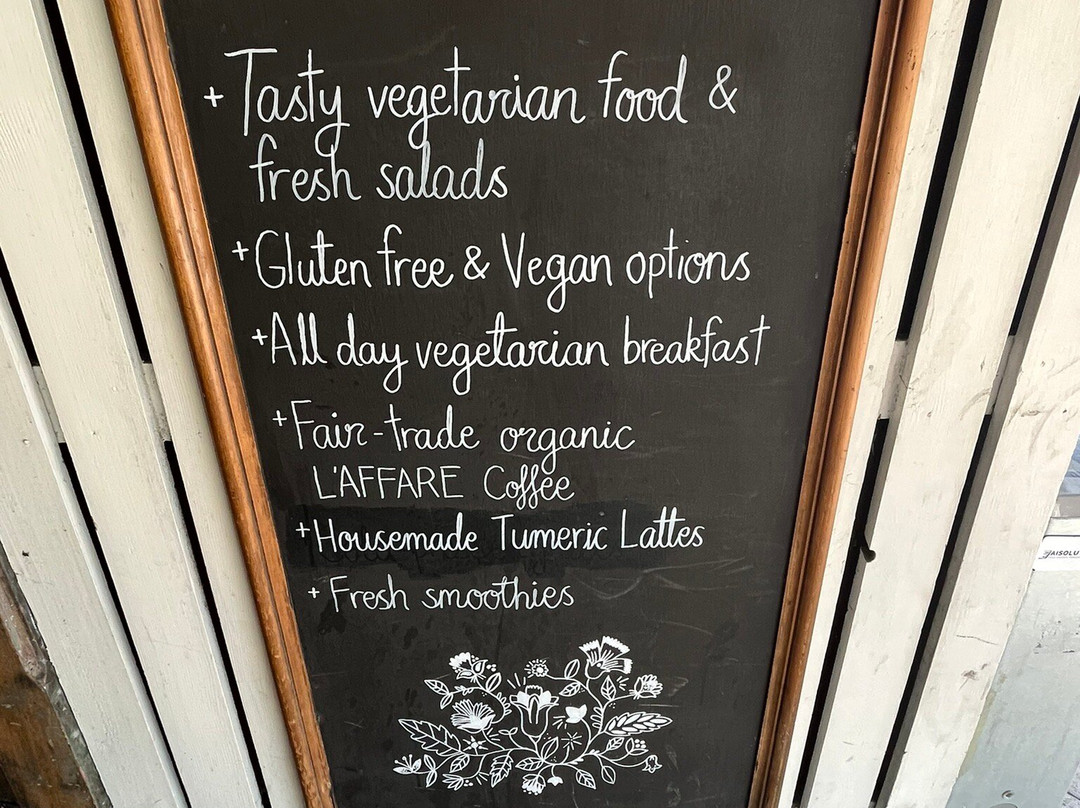 + Tasty vegetarian food &
fresh salads
+ Gluten free & Vegan options
+ All day vegetarian breakfast
+ Fair-trade organic
L'AFFARE Coffee
+ Housemade Tumeric Lattes
+ Fresh smoothies